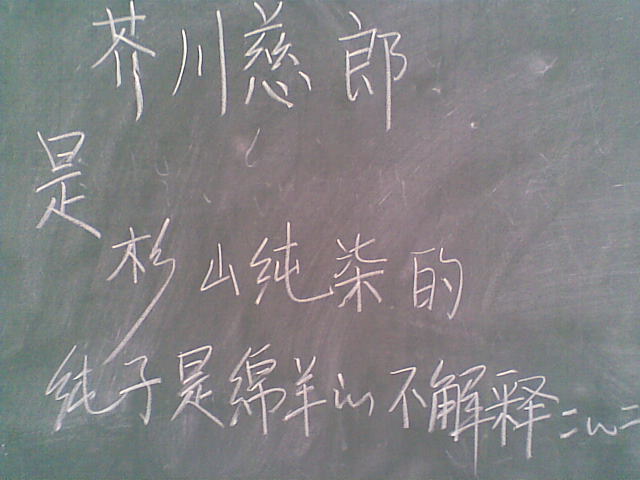 芥川慈郎
是
杉山纯染的
纯子是绵羊的不解释=ω=